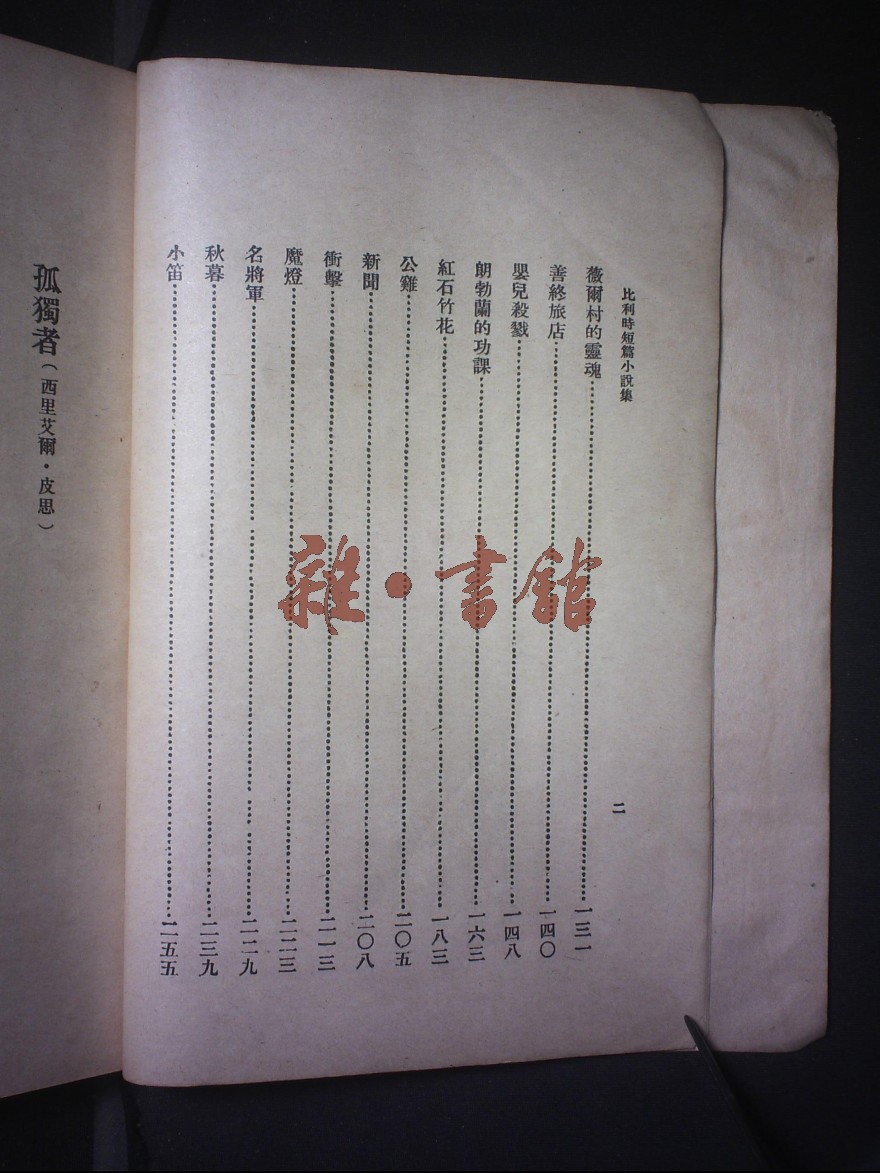 比利時短篇小說集
二
薇爾村的靈魂…………一三一
善終旅店…………一四〇
嬰兒殺戮…………一四八
朗勃蘭的功課…………一六三
紅石竹花…………一八三
公雞…………二〇五
新聞…………二〇八
衝擊…………二一三
魔燈…………二二三
名將軍…………二二九
秋暮…………二三九
小笛…………二五五
孤獨者(西里艾爾·皮思)
雜·書館